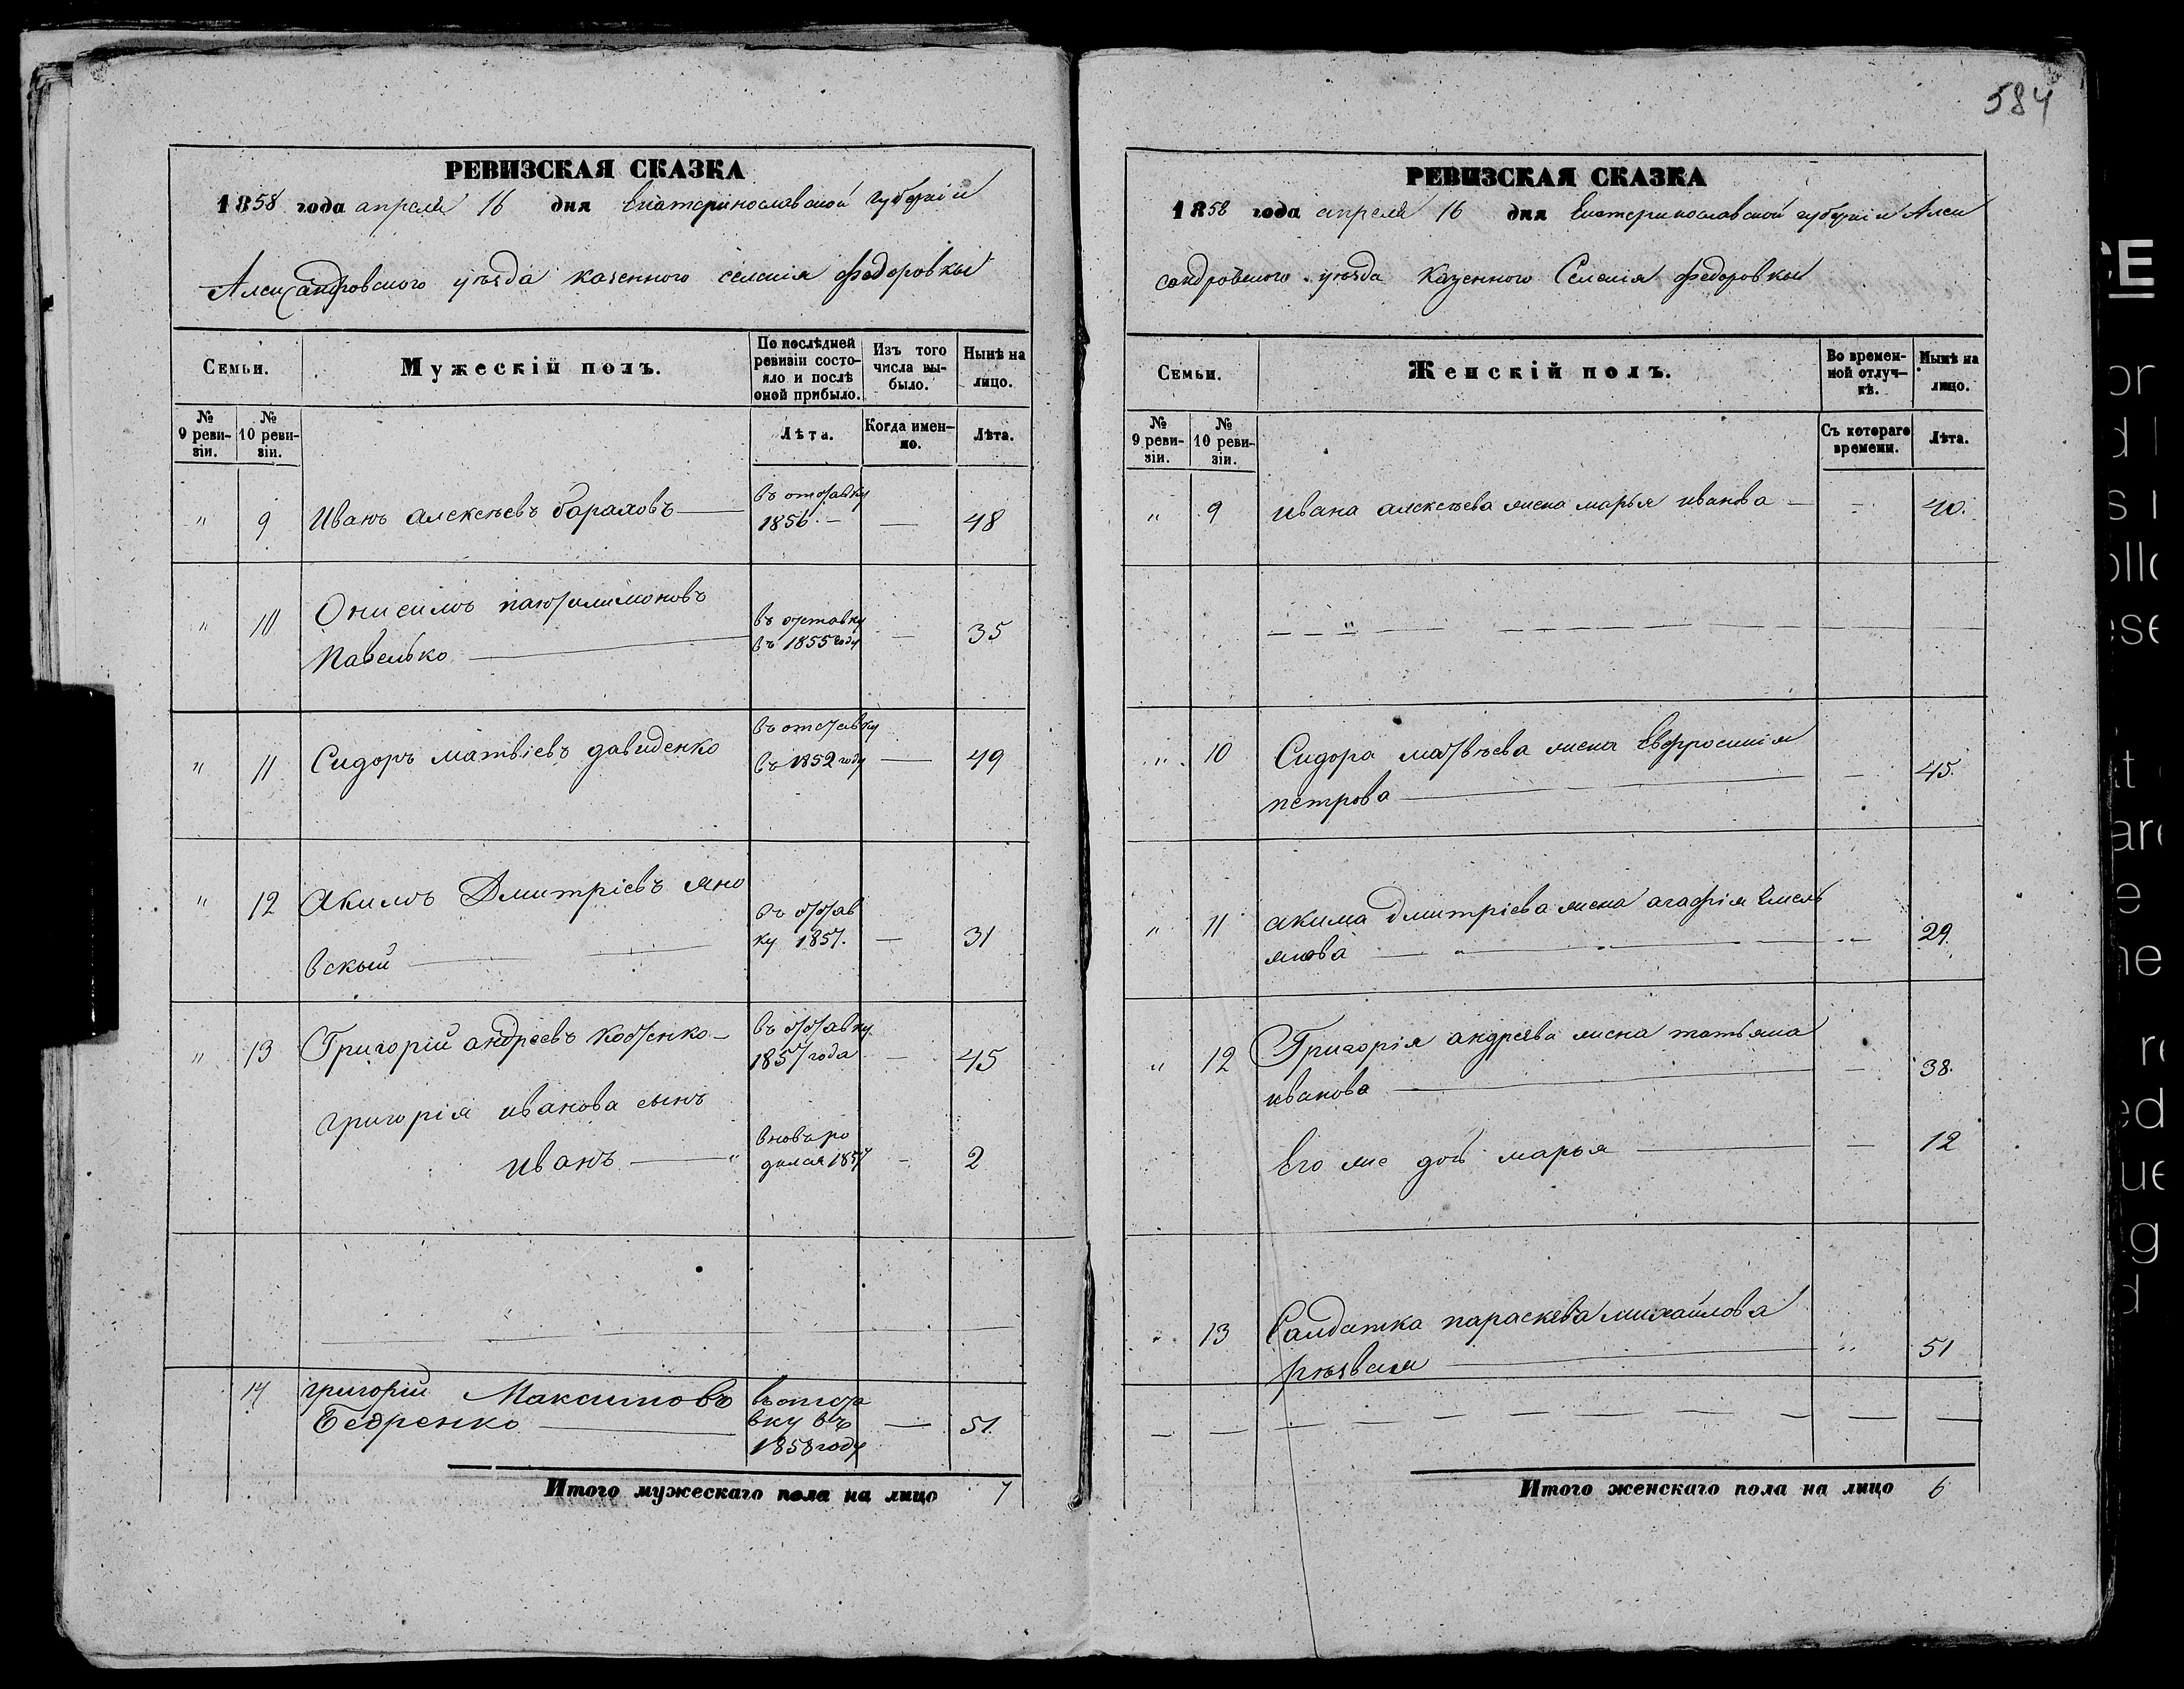 584
РЕВИЗСКАЯ СКАЗКА
1858 года апреля 16 дня Екатеринославской губернии
Александровского уѣзда казенного селенія Федоровки
Семьи.
Мужескій полъ.
По послѣдней ревизіи состояло и послѣ оной прибыло.
Изъ того числа выбыло.
Нынѣ на лицо.
№ 9 ревизіи.
№ 10 ревизіи.
Лѣта.
Когда именно.
Лѣта.
" 9 Иванъ алексѣевъ въ отставку 1856. — — 48
" 10 Онисимъ пантилимоновъ
Павелько въ отставку въ 1855 году — 35
" 11 Сидоръ матвіевъ давиденко въ отставку въ 1852 году — 49
" 12 Акимъ Дмитріевъ яно
вскый въ отстав
ку 1857. — 31
" 13 Григорій андреевъ Котенко — въ отставку
1857 года — 45
григорія иванова сынъ
иванъ — " вновь ро
дился 1857 — 2
14 григорій Максимовъ
Бедренко въ отста
вку въ
1858 году — 51.
Итого мужескаго пола на лицо 7
РЕВИЗСКАЯ СКАЗКА
1858 года апреля 16 дня Екатеринославской губерніи Алек
сандровского уѣзда Казенного Селенія федоровки
Семьи.
Женскій полъ.
Во временной отлучкѣ.
Нынѣ на лицо.
№ 9 ревизіи.
№ 10 ревизіи.
Съ котораго времени.
Лѣта.
" 9 ивана алексѣева жена марья иванова — — 40.
" 10 Сидора матвѣева жена Евфросинія
петрова — — 45.
" 11 акима дмитріева жена агафія Емель
янова — 29.
" 12 Григорія андреева жена татьяна
иванова — — 38.
Его же дочь марья — — 12
" 13 Салдатка параскева михайлова
— " 51
Итого женскаго пола на лицо 6